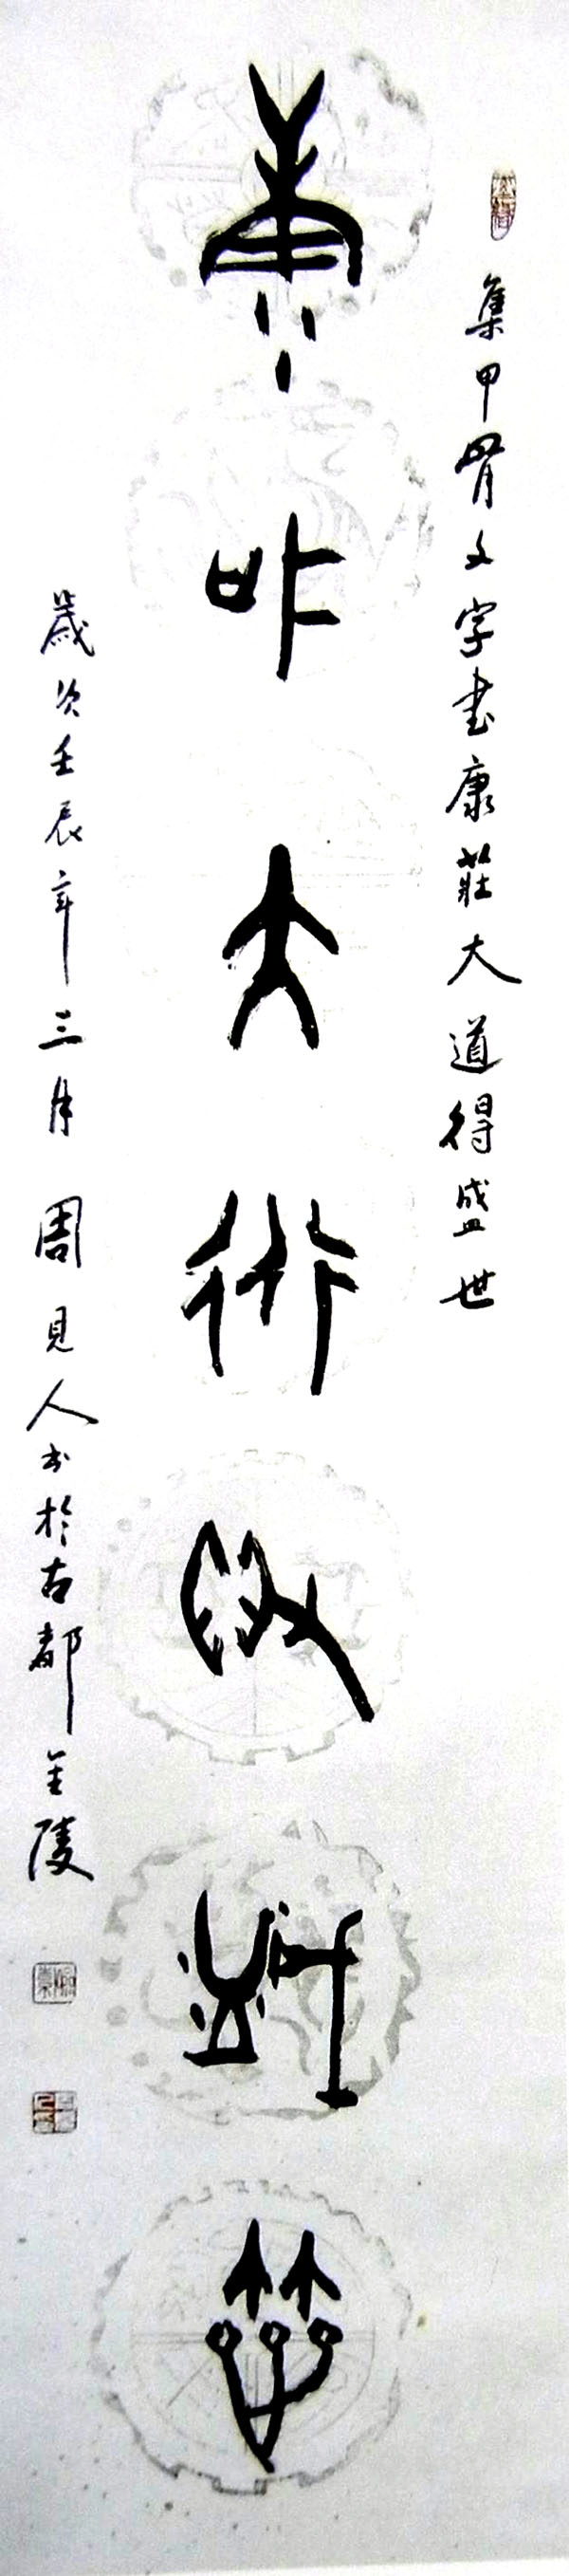 集甲骨文字书康莊大道得盛世
康莊大道得盛世
歲次壬辰年三月周見人书於古都金陵